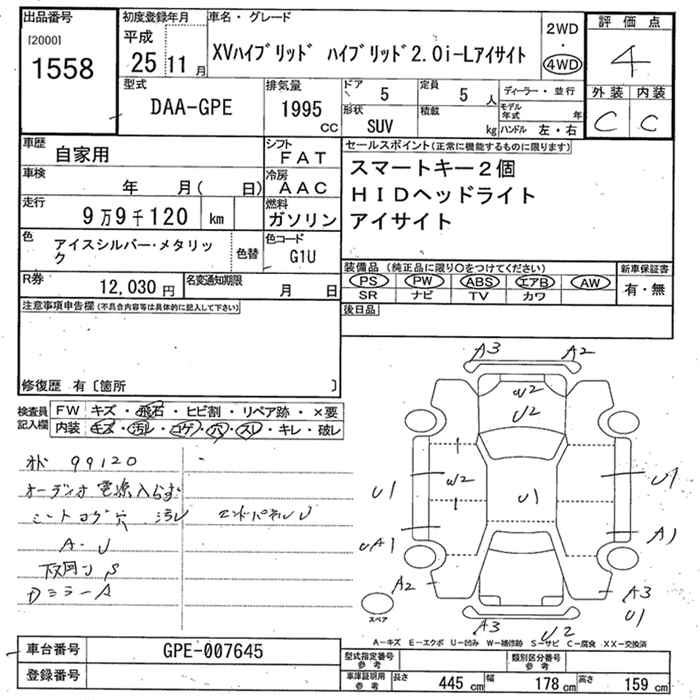 出品番号
[2000]
1558
初度登録年月
平成
25 11 月
車名・グレード
XVハイブリッド ハイブリッド2.0i-Lアイサイト
2WD
・
4WD
評価点
4
外装 内装
C C
型式
DAA-GPE
排気量
1995
CC
ドア
5
定員
5 人
形状
SUV
積載
kg
ディーラー・並行
モデル
年式 年
ハンドル 左・右
車歴
自家用
シフト
FAT
車検
年 月( 日)
冷房
AAC
走行
9万9千120 km
燃料
ガソリン
色
アイスシルバー・メタリッ
ク
色替
色コード
G1U
R券
12,030 円
名変通知期限
月 日
セールスポイント(正常に機能するものに限ります)
スマートキー2個
HIDヘッドライト
アイサイト
装備品(純正品に限り○をつけてください)
PS PW ABS エアB AW
SR ナビ TV カワ
新車保証書
有・無
後日品
注意事項申告欄(不具合内容等は具体的に記入して下さい)
修復歴 有〔箇所 〕
検査員
記入欄
FW キズ・飛石・ヒビ割・リペア跡・×要
内装 キズ・汚レ・コゲ・穴・スレ・キレ・破レ
99120
オーディオ電源入らず
シートコゲ穴 汚レ エンドパネルU
A・U
下回りS
DミラーA
A3 A2
W2
U2
U1 W2 U1 U1
UA1 A1
A2 A3
U1
A3 U2
スペア
A-キズ E-エクボ U-凹み W-補修跡 S-サビ C-腐食 XX-交換済
車台番号 GPE-007645
登録番号
型式指定番号
参考
類別区分番号
参考
車庫証明用
参考
長さ 445 cm 幅 178 cm 高さ 159 cm